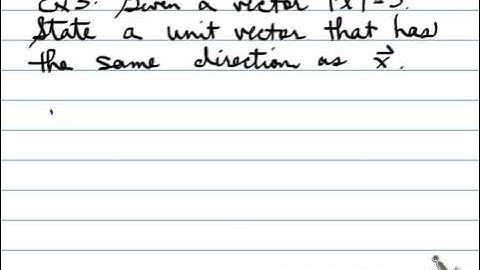 Ex 3: Given a vector |x⃗| = 3.
State a unit vector that has
the same direction as x⃗.